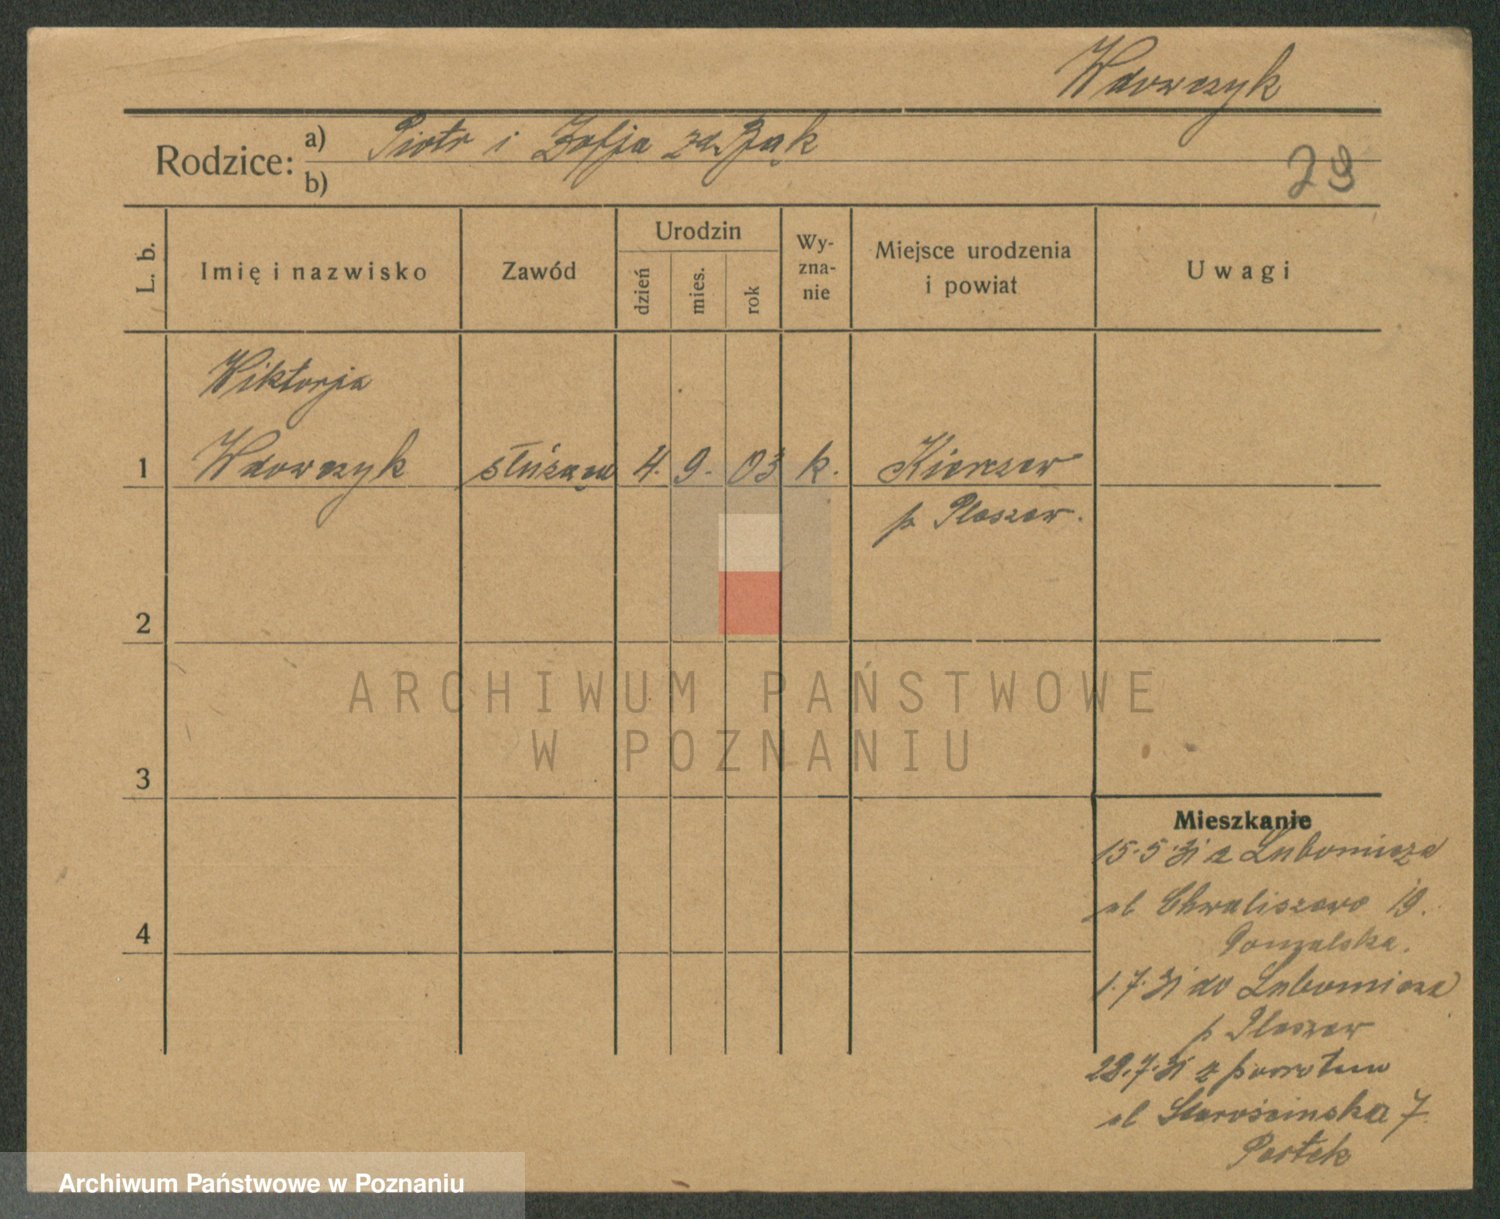 Wdowczyk
Rodzice: a) Piotr i Zofja zd. Bąk
b)
29
L. b.
Imię i nazwisko
Zawód
Urodzin
dzień
mies.
rok
Wy-
zna-
nie
Miejsce urodzenia
i powiat
Uwagi
Wiktorja
1 Wdowczyk służąca 4. 9. 03 k.
p. Pleszew.
2
ARCHIWUM PAŃSTWOWE
W POZNANIU
3
Mieszkanie
15.5.31 z Lubomierza
ul Chwaliszewo 19.
4
1.7.31 do Lubomierza
p Pleszew
28.7.31 z powrotem
ul Starościńska 7
Archiwum Państwowe w Poznaniu